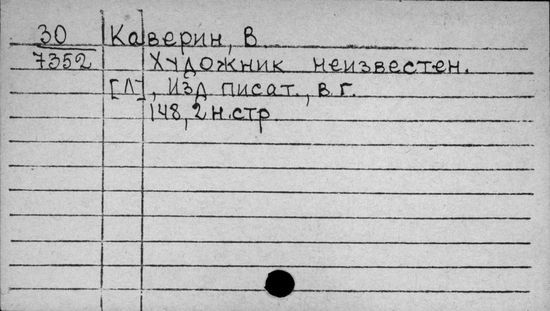 30 Каверин, В.
7352 Художник неизвестен.
[Л], Изд. писат., в г.
148, 2 н. стр.